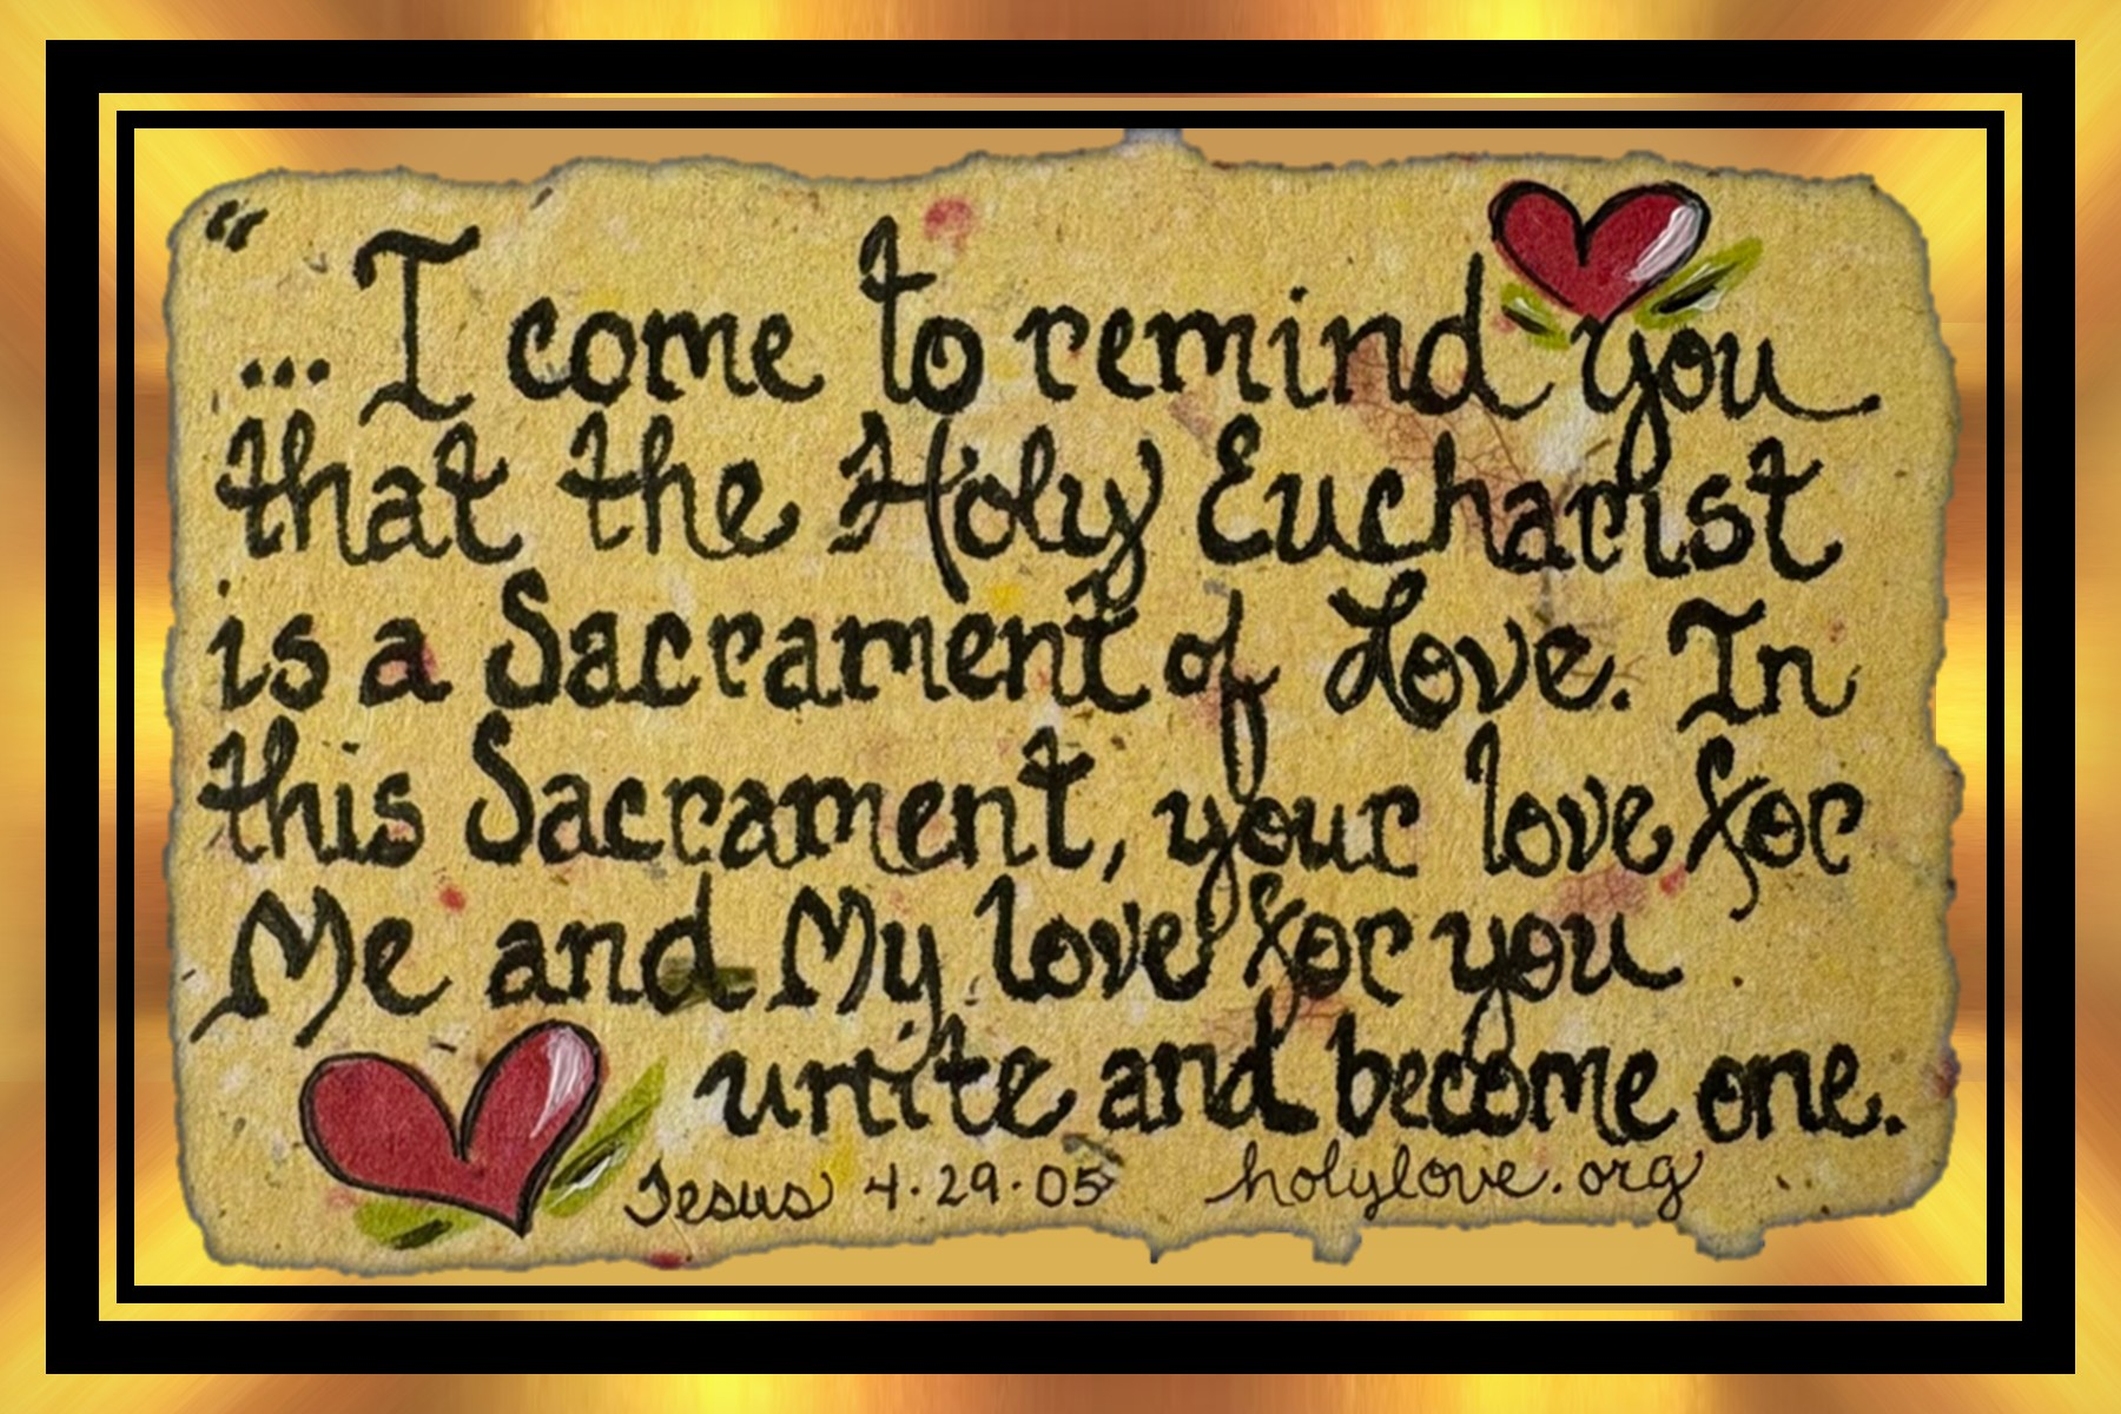 “
... I come to remind you
that the Holy Eucharist
is a Sacrament of Love. In
this Sacrament, your love for
Me and My love for you
unite and become one.
Jesus 4.29.05 holylove.org